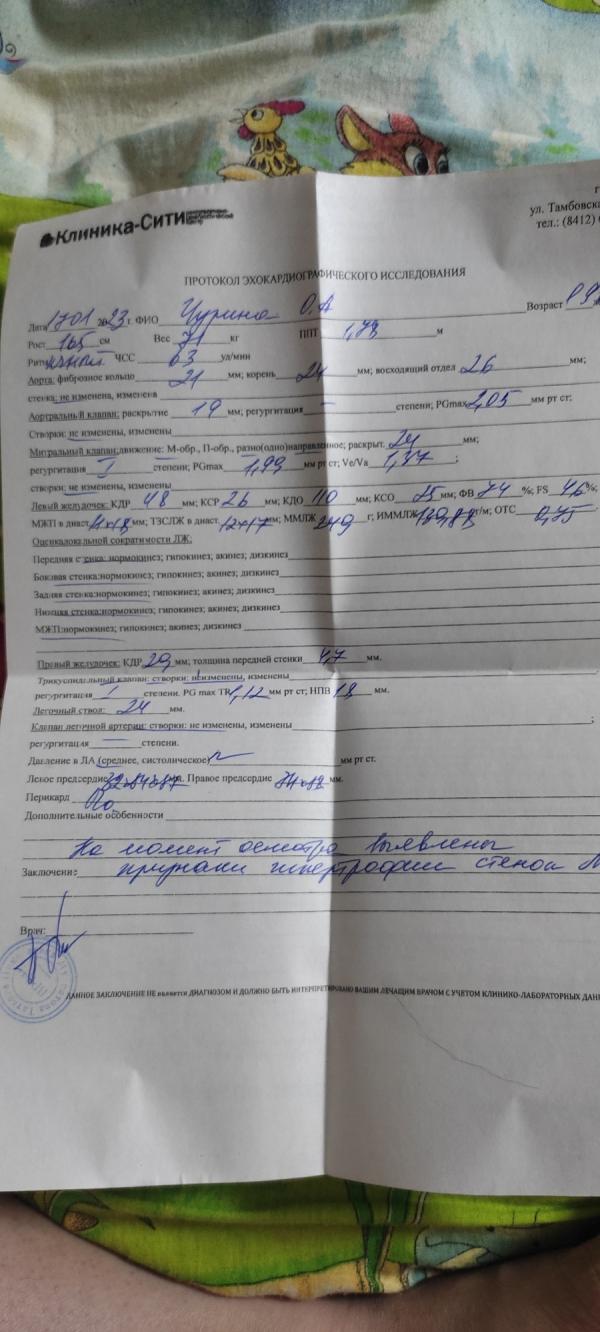 Клиника-Сити
ул. Тамбовска
тел.: (8412)
ПРОТОКОЛ ЭХОКАРДИОГРАФИЧЕСКОГО ИССЛЕДОВАНИЯ
Дата 1701 2023 г. ФИО Чурина О.А Возраст
Рост 165 см Вес 71 кг ППТ 1,78 м
Ритм ЧСС 63 уд/мин
Аорта: фиброзное кольцо 21 мм; корень 24 мм; восходящий отдел 26 мм;
стенка: не изменена, изменена
Аортральный клапан: раскрытие 19 мм; регургитация – степени; PGmax 2,05 мм рт ст;
Створки: не изменены, изменены
Митральный клапан: движение: М-обр., П-обр., разно(одно)направленное; раскрыт. 24 мм;
регургитация I степени; PGmax 1,99 мм рт ст; Ve/Va 1,37 ;
створки: не изменены, изменены
Левый желудочек: КДР 48 мм; КСР 26 мм; КДО 110 мм; КСО мм; ФВ 74 %; FS 46 %;
МЖП в диаст. мм; ТЗСЛЖ в диаст. 12х17 мм; ММЛЖ 249 г; ИММЛЖ г/м; ОТС
Оценкалокальной сократимости ЛЖ:
Передняя стенка: нормокинез; гипокинез; акинез; дизкинез
Боковая стенка:нормокинез; гипокинез; акинез; дизкинез
Задняя стенка:нормокинез; гипокинез; акинез; дизкинез
Нижняя стенка:нормокинез; гипокинез; акинез; дизкинез
МЖП:нормокинез; гипокинез; акинез; дизкинез
Правый желудочек: КДР мм; толщина передней стенки 4,7 мм.
Трикуспидельный клапан: створки: неизменены, изменены
регургитация I степени. PG max TR 1,12 мм рт ст; НПВ 18 мм.
Легочный ствол: 24 мм.
Клапан легочной артерии: створки: не изменены, изменены ;
регургитация – степени.
Давление в ЛА (среднее, систолическое) мм рт ст.
Левое предсердие мм. Правое предсердие мм.
Перикард
Дополнительные особенности
На момент осмотра выявлены
Заключение признаки гипертрофии стенок
Врач:
ДАННОЕ ЗАКЛЮЧЕНИЕ НЕ является ДИАГНОЗОМ И ДОЛЖНО БЫТЬ ИНТЕРПРЕТИРОВАНО ВАШИМ ЛЕЧАЩИМ ВРАЧОМ С УЧЕТОМ КЛИНИКО-ЛАБОРАТОРНЫХ ДАН